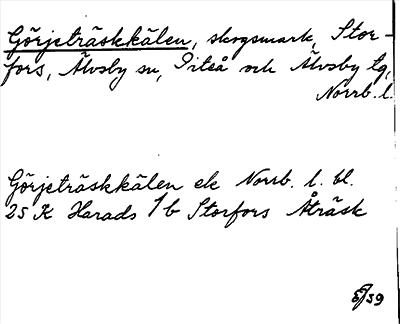 Görjeträskkälen, skogsmark, Stor-
fors, Älvsby sn, Piteå och Älvsby tg,
Norrb. l.
Görjeträskkälen ek Norrb. l. bl.
25 K Harads 1b Storfors Åträsk
/59